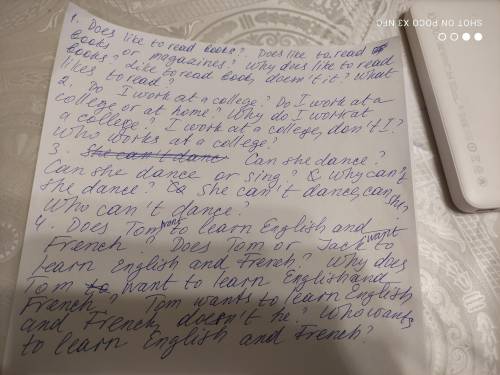 1. Does like to read books? Does like to read
books or magazines? Why does like to read
books? Like to read book, doesn't it? What
likes to read?
2. Do I work at a college? Do I work at a
college or at home? Why do I work at
a college? I work at a college, don't I?
Who works at a college?
3. She can't danc Can she dance?
Can she dance or sing? Why can't
she dance? She can't dance, can she?
Who can't dance?
4. Does Tom want to learn English and
French? Does Tom or Jack want to
learn English and French? Why does
Tom to want to learn English and
French? Tom wants to learn English
and French, doesn't he? Who wants
to learn English and French?
SHOT ON POCO X3 NFC